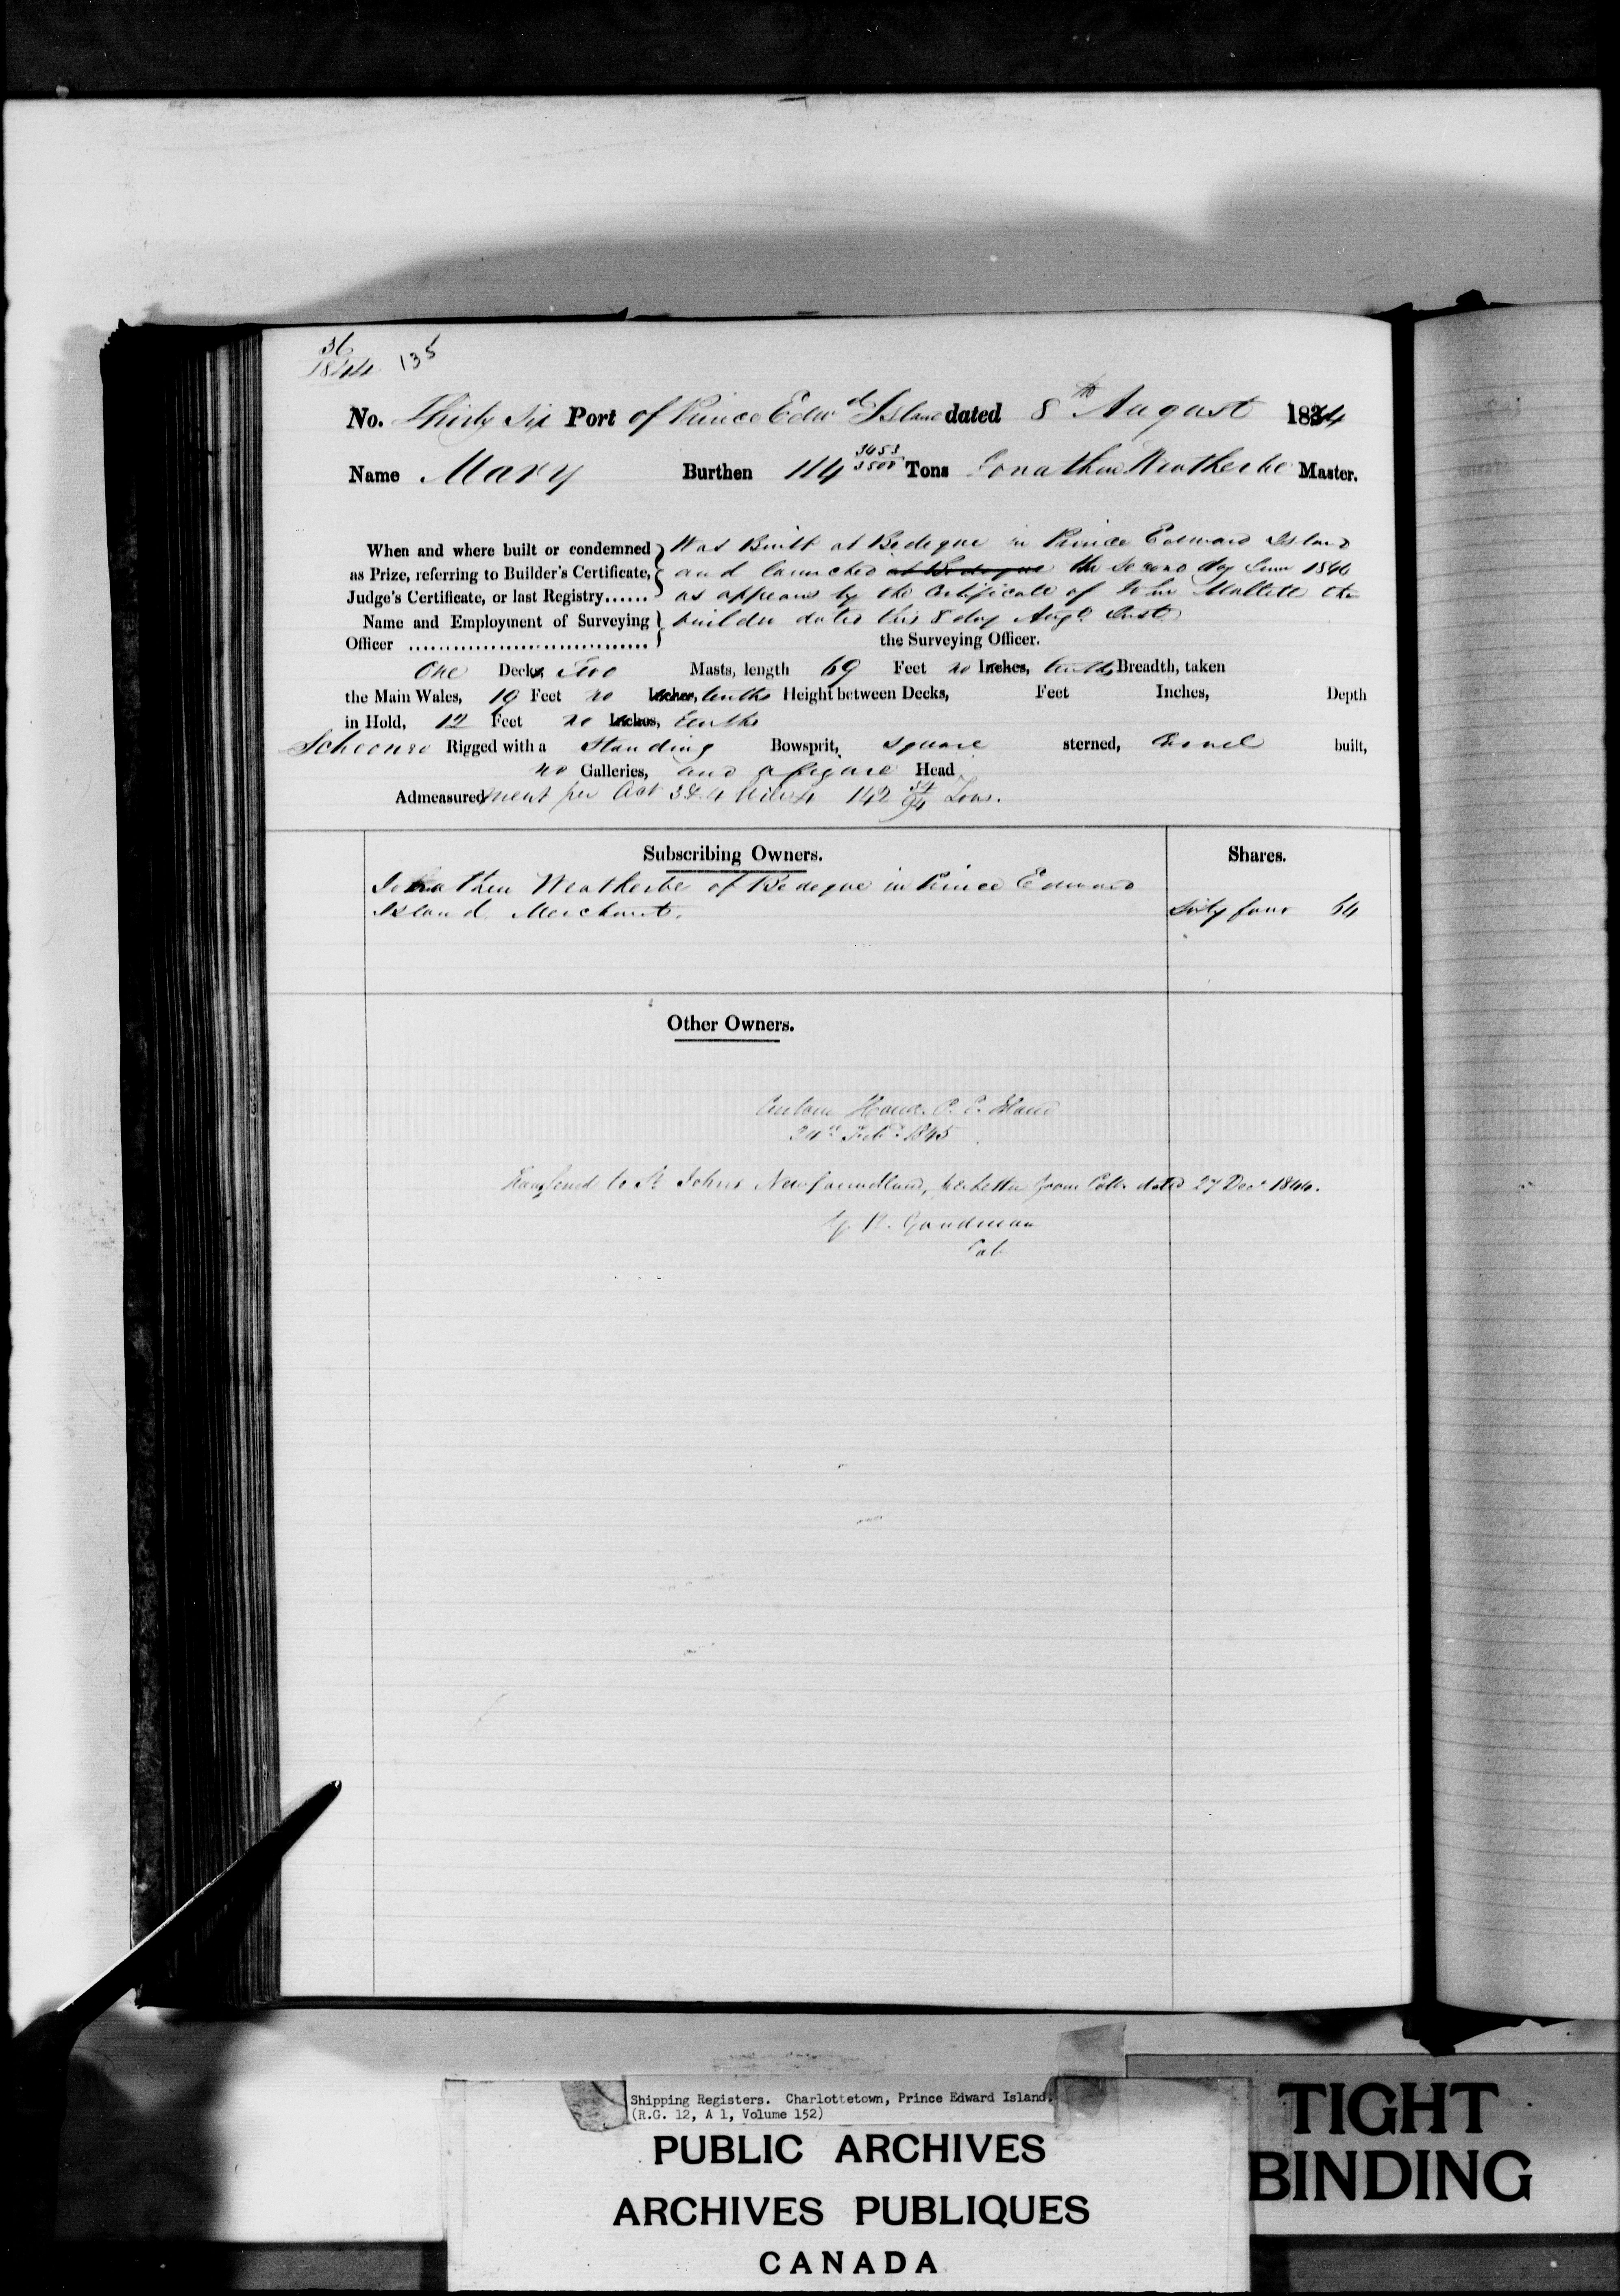 36
1844 135
No. Thirty Six Port of Prince Edwd Island dated 8th August 1844
Name Mary Burthen 114 3453/3500 Tons Jonathan Weatherbe Master.
When and where built or condemned
as Prize, referring to Builder's Certificate,
Judge's Certificate, or last Registry......
Was Built at Bedeque in Prince Edward Island
and launched at Bedeque the Second day June 1844
as appears by the Certificate of John Mallett the
Name and Employment of Surveying
Officer
builder dated this 8 day Augt Inst
the Surveying Officer.
One Decks, Two Masts, length 69 Feet no Inches, tenths Breadth, taken
the Main Wales, 19 Feet no Inches, tenths Height between Decks, Feet Inches, Depth
in Hold, 12 Feet no Inches, tenths
Schooner Rigged with a Standing Bowsprit, square sterned, Carvel built,
no Galleries, and a figure Head
Admeasurement per Act 142 54/94 Tons.
Subscribing Owners. Shares.
Jonathan Weatherbe of Bedeque in Prince Edward
Island Merchant. Sixty four 64
Other Owners.
Custom House P. E. Island
24th Feby 1845
Transferred to St Johns Newfoundland, per Letter from Collr dated 27 Decr 1844.
Goodman
Col
Shipping Registers. Charlottetown, Prince Edward Island.
(R.G. 12, A 1, Volume 152)
PUBLIC ARCHIVES
ARCHIVES PUBLIQUES
CANADA
TIGHT
BINDING